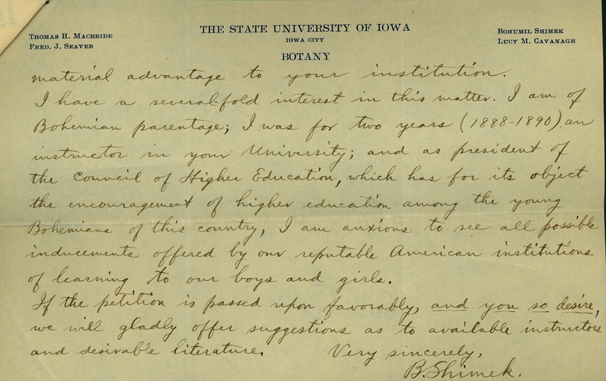 THOMAS H. MACBRIDE
FRED. J. SEAVER
THE STATE UNIVERSITY OF IOWA
IOWA CITY
BOTANY
BOHUMIL SHIMEK
LUCY M. CAVANAGH
material advantage to your institution.
I have a several-fold interest in this matter. I am of
Bohemian parentage; I was for two years (1888-1890) an
instructor in your University; and as president of
the Council of Higher Education, which has for its object
the encouragement of higher education among the young
Bohemians of this country, I am anxious to see all possible
inducements offered by our reputable American institutions
of learning to our boys and girls.
If the petition is passed upon favorably, and you so desire,
we will gladly offer suggestions as to available instructors
and desirable literature. Very sincerely,
B. Shimek.